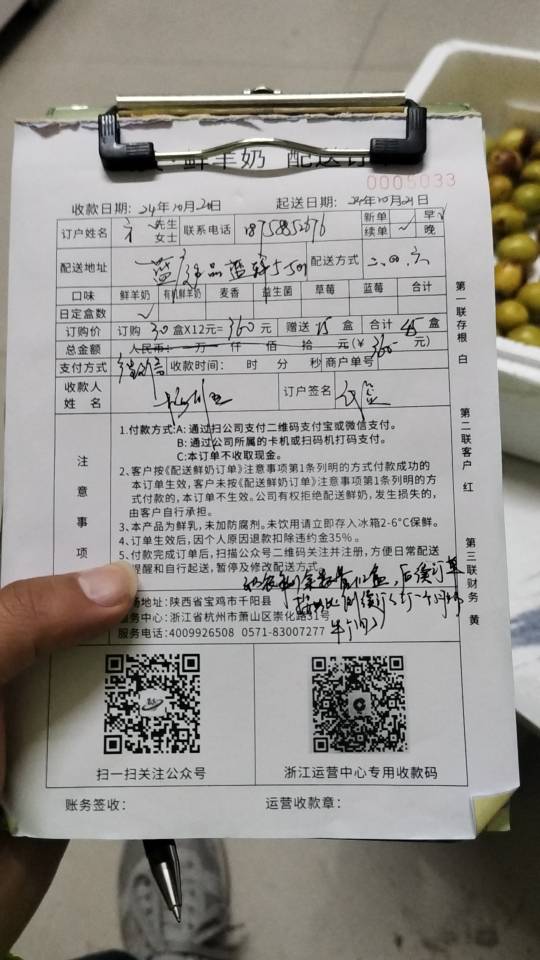 鲜羊奶 配送订单
0005033
收款日期：24年10月21日 起送日期：24年10月21日
订户姓名 先生 女士 联系电话 新单 早√
续单 √ 晚
配送地址 配送方式 二.四.六
口味 鲜羊奶 有机鲜羊奶 麦香 益生菌 草莓 蓝莓 合计
日定盒数 √
订购价 订购 30 盒X12元=360元 赠送 15 盒 合计 45 盒
总金额 人民币：万 仟 佰 拾 元(￥360元)
支付方式 微信 收款时间： 时 分 秒 商户单号
收款人姓名 订户签名
注意事项
1.付款方式:A:通过扫公司支付二维码支付宝或微信支付。
B:通过公司所属的卡机或扫码机打码支付。
C:本订单不收取现金。
2、客户按《配送鲜奶订单》注意事项第1条列明的方式付款成功的
本订单生效，客户未按《配送鲜奶订单》注意事项第1条列明的方
式付款的，本订单不生效。公司有权拒绝配送鲜奶，发生损失的，
由客户自行承担。
3、本产品为鲜乳，未加防腐剂。未饮用请立即存入冰箱2-6°C保鲜。
4、订单生效后，因个人原因退款扣除违约金35%。
5、付款完成订单后，扫描公众号二维码关注并注册，方便日常配送
提醒和自行起送，暂停及修改配送方式。
场地址：陕西省宝鸡市千阳县
服务中心：浙江省杭州市萧山区崇化路31号
服务电话：4009926508 0571-83007277
第一联存根 白
第二联客户 红
第三联财务 黄
扫一扫关注公众号 浙江运营中心专用收款码
账务签收： 运营收款章：